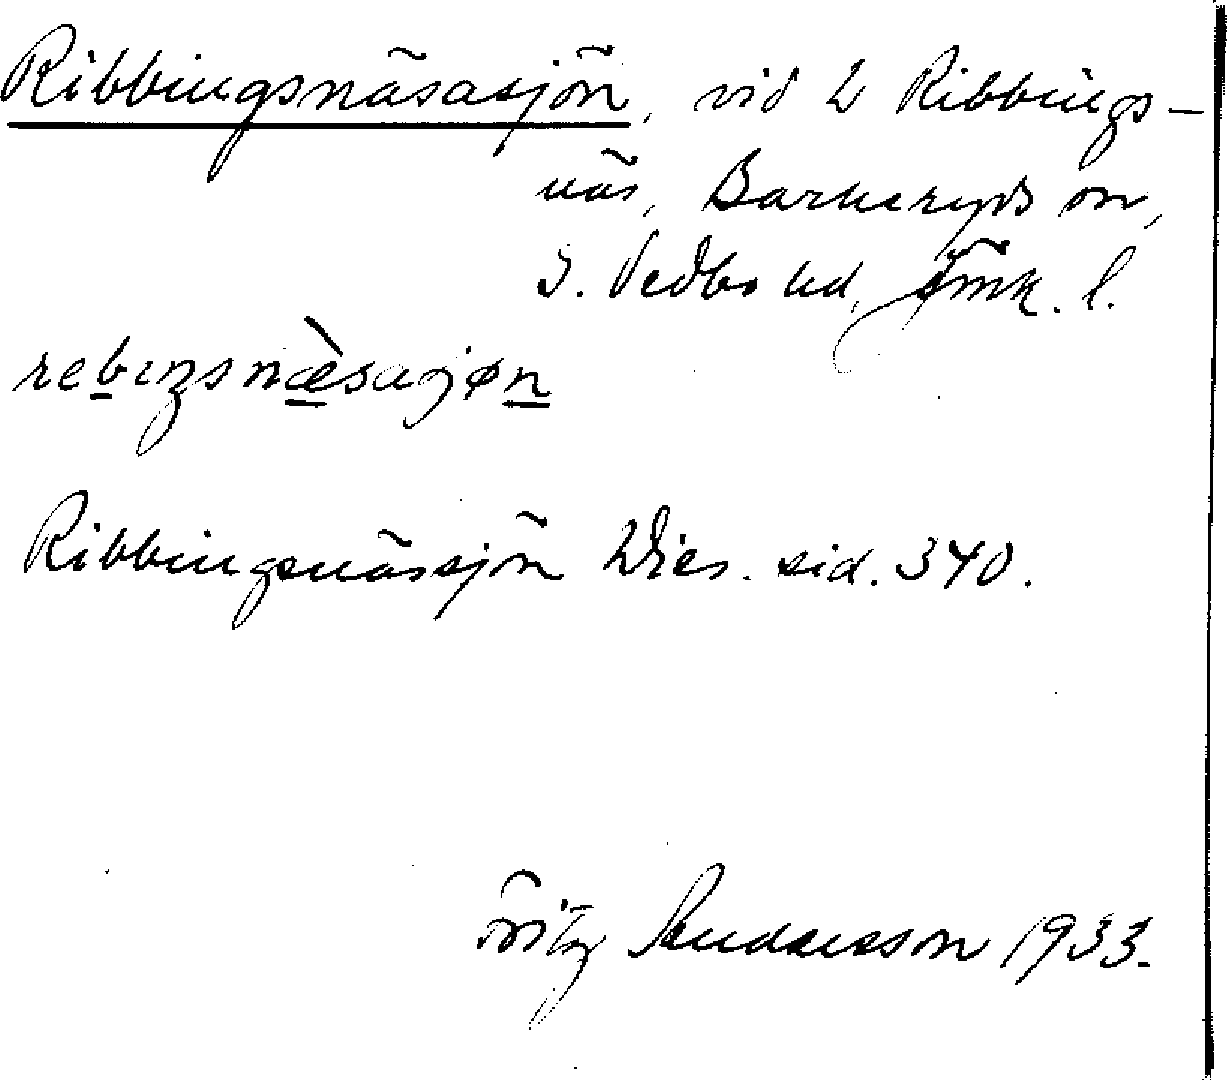 Ribbingsnäsasjön, vid L Ribbings-
näs, Barkeryds sn,
S. Vedbo hd, Jmk. l.
rebiŋsnæ̀saʃøn
Ribbingsnässjön Wies. sid. 340.
Fritz Andersson 1933.